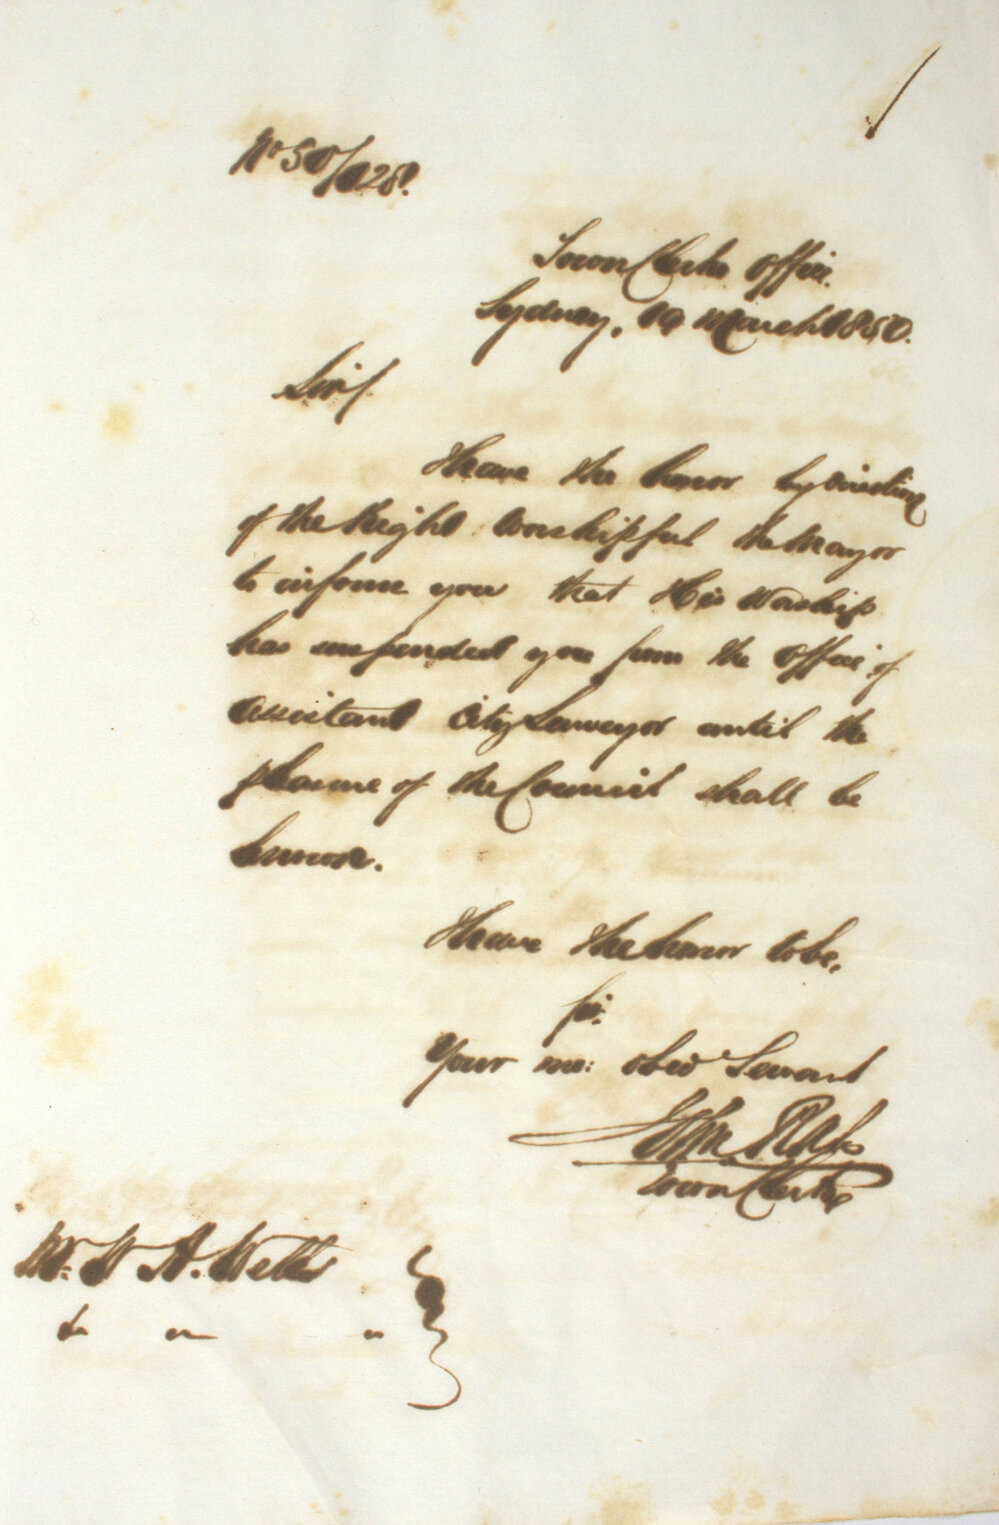 No 50/128.
Town Clerks Office.
Sydney, 19 March 1850.
Sir,
I have the honor by direction
of the Right Worshipful the Mayor
to inform you that His Worship
has suspended you from the Office of
Assistant City Surveyor until the
pleasure of the Council shall be
known.
I have the honor to be,
Sir.
Your mo: obed Servant
John Rae
Town Clerk
Mr. W A. Wells